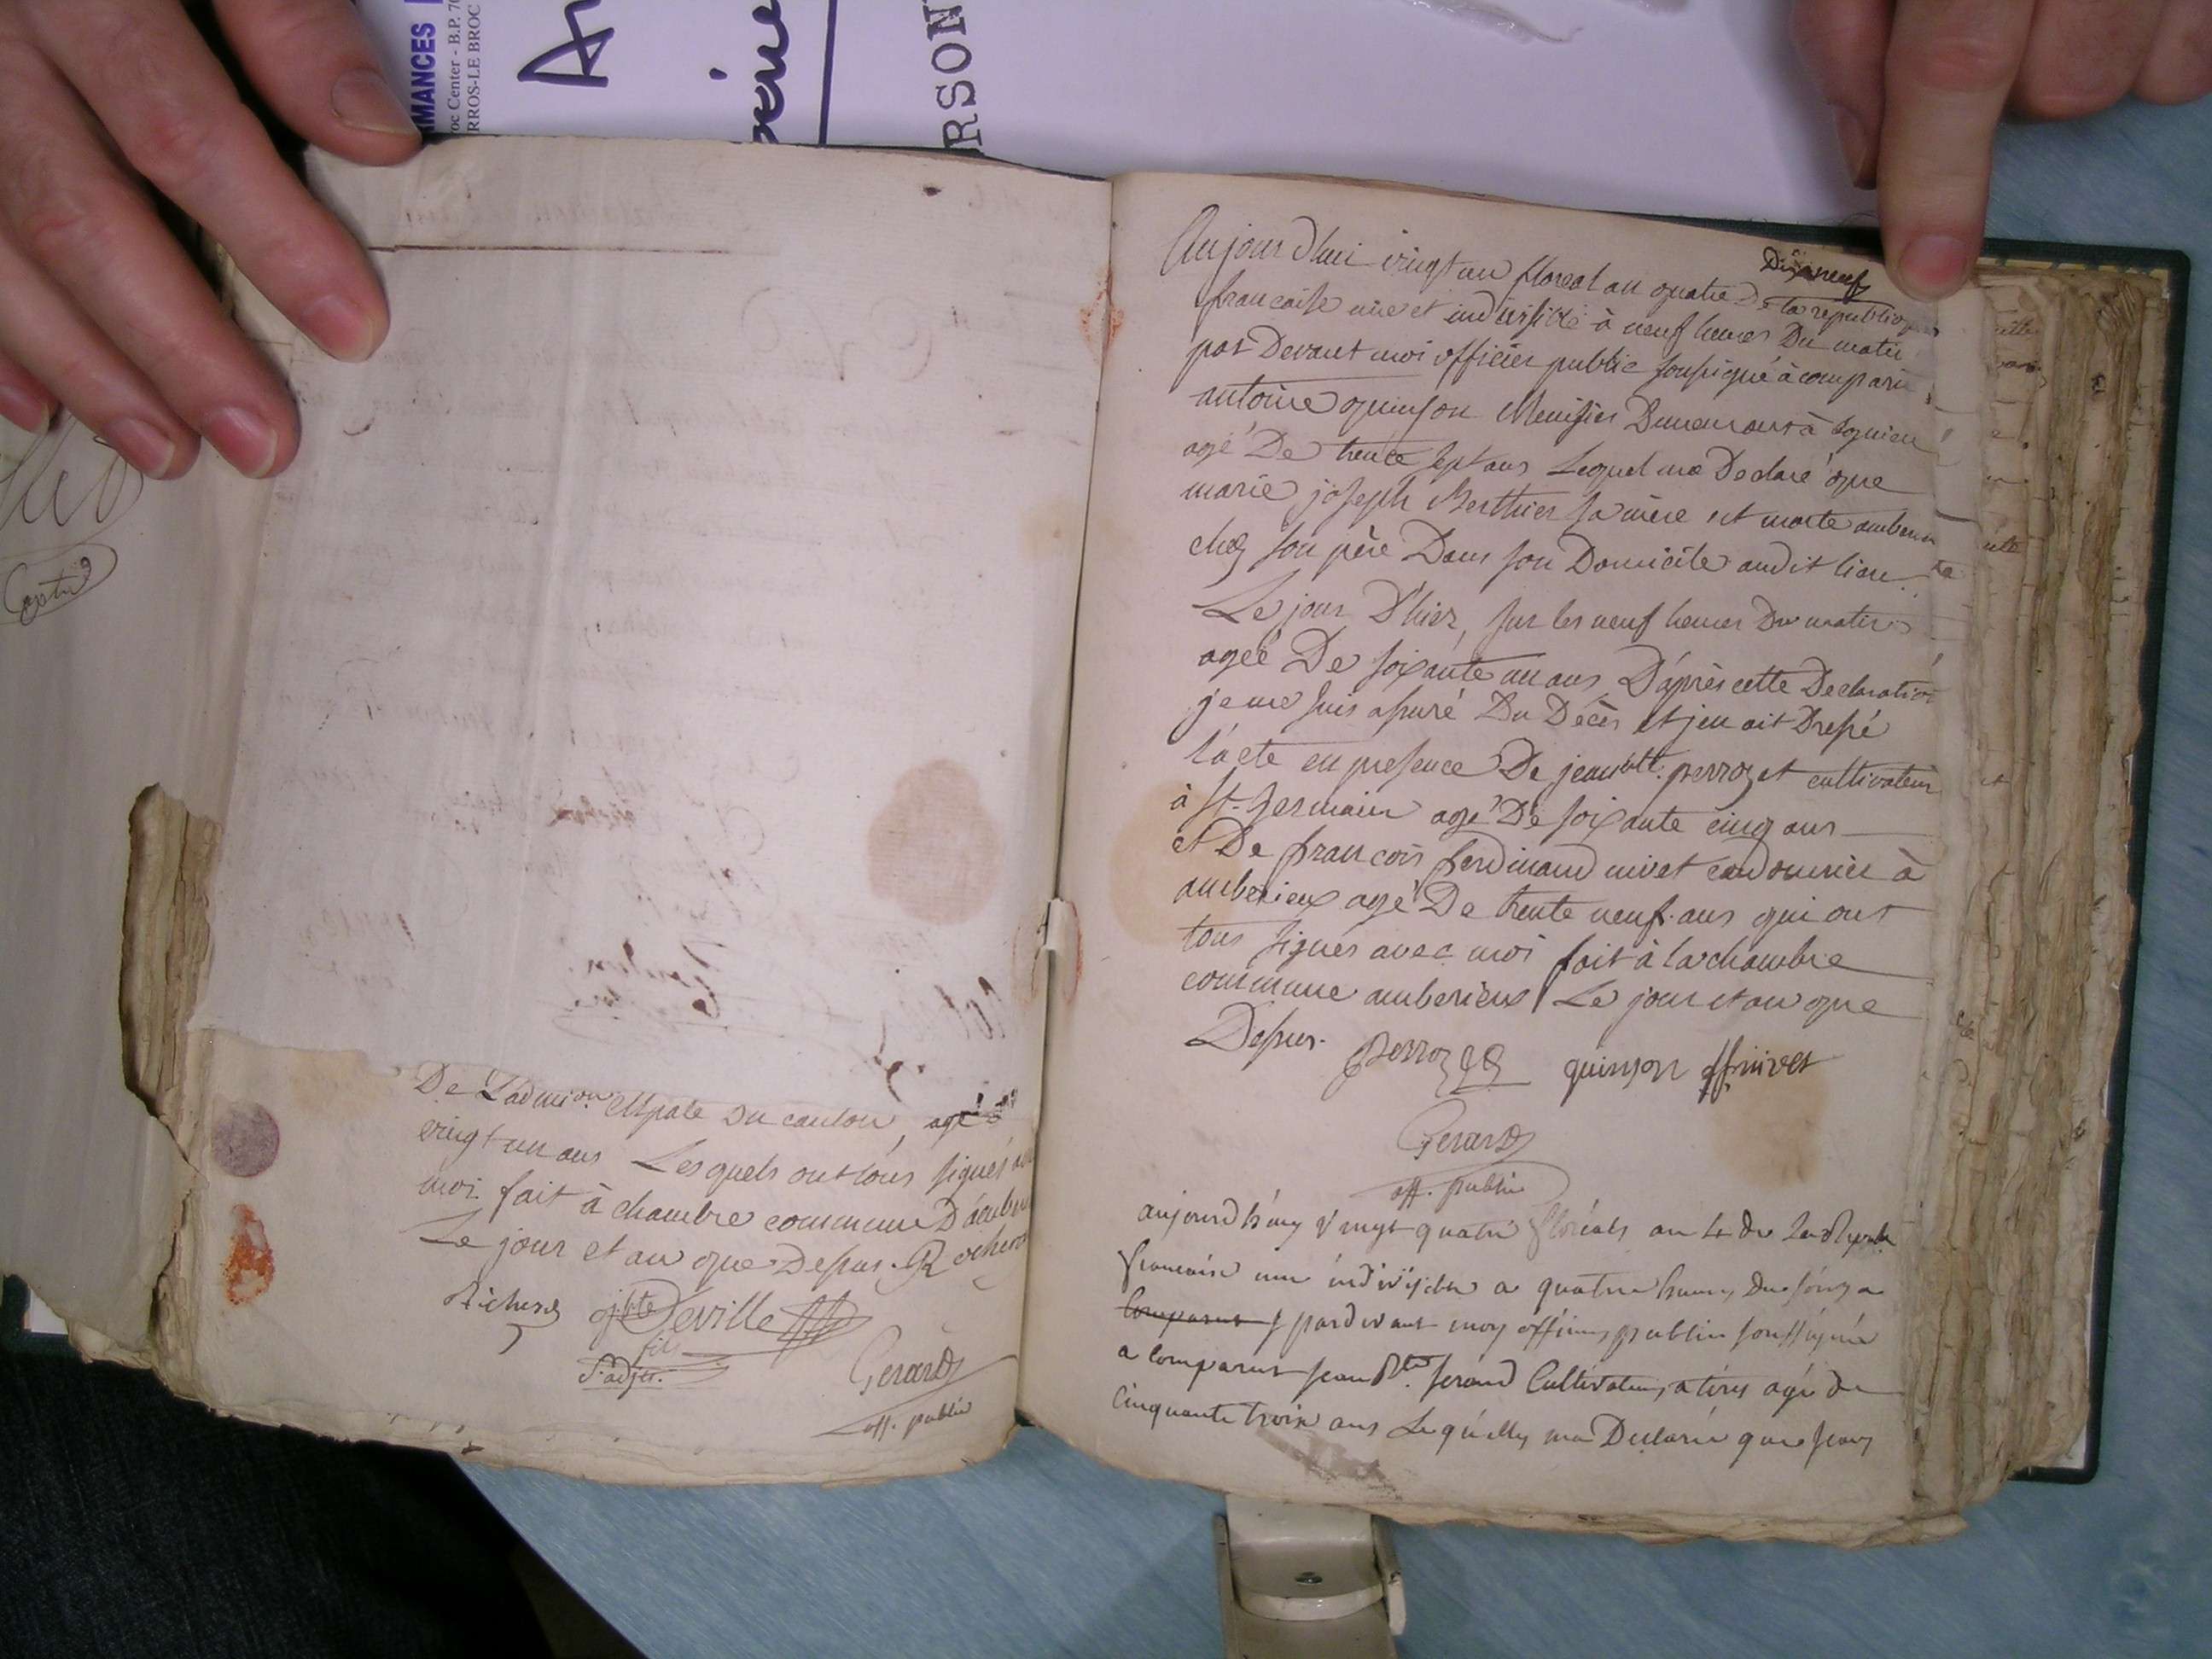 MMANCES
oc Center - B.P. 70
RROS-LE BROC
RSON
De L'admi.on Mpale Du canton, agé
vingt un ans Lesquels ont tous signés
moi fait à chambre commune D'amb
Le jour et an que Depus. Rocher
Richerd jbte Deville
fils
S. adjt.
Gerard
off. public
Dixneuf
Aujourd'huy vingt un floreal an quatre De la republique
francaise une et indivisible à neuf heures Du matin
par Devant moi officier public soussigné à comparu
antoine quinson Menusier Demeurant à lagnieu
agé De trente sept ans Lequel ma Declaré que
marie joseph Berthier sa mère est morte
chez son père Dans son Domicile audit lieu
Le jour D'hier, sur les neuf heures Du matin
ageé De soixante un ans D'après cette Declaration
je me suis assuré Du Décès et jen ait Dressé
l'acte en presence De jean btt. perrozet cultivateur
à St. Germain agé De soixante cinq ans
et De francois ferdinand nivet cordonnier à
amberieux agé De trente neuf ans qui ont
tous signés avec moi fait à la chambre
commune amberieux Le jour et an que
Depus.
Perrozet quinson ff nivet
Gerard
off. public
aujourdhuy vingt quatre floréals an 4 de la Repub
francaise une indivisible a quatre heures du soir a
comparut pardevant moy officier public soussigné
a comparut jean Bte. ferand Cultivateur, a tiret agé de
cinquante troix ans Lequelle, ma Declaré que jean